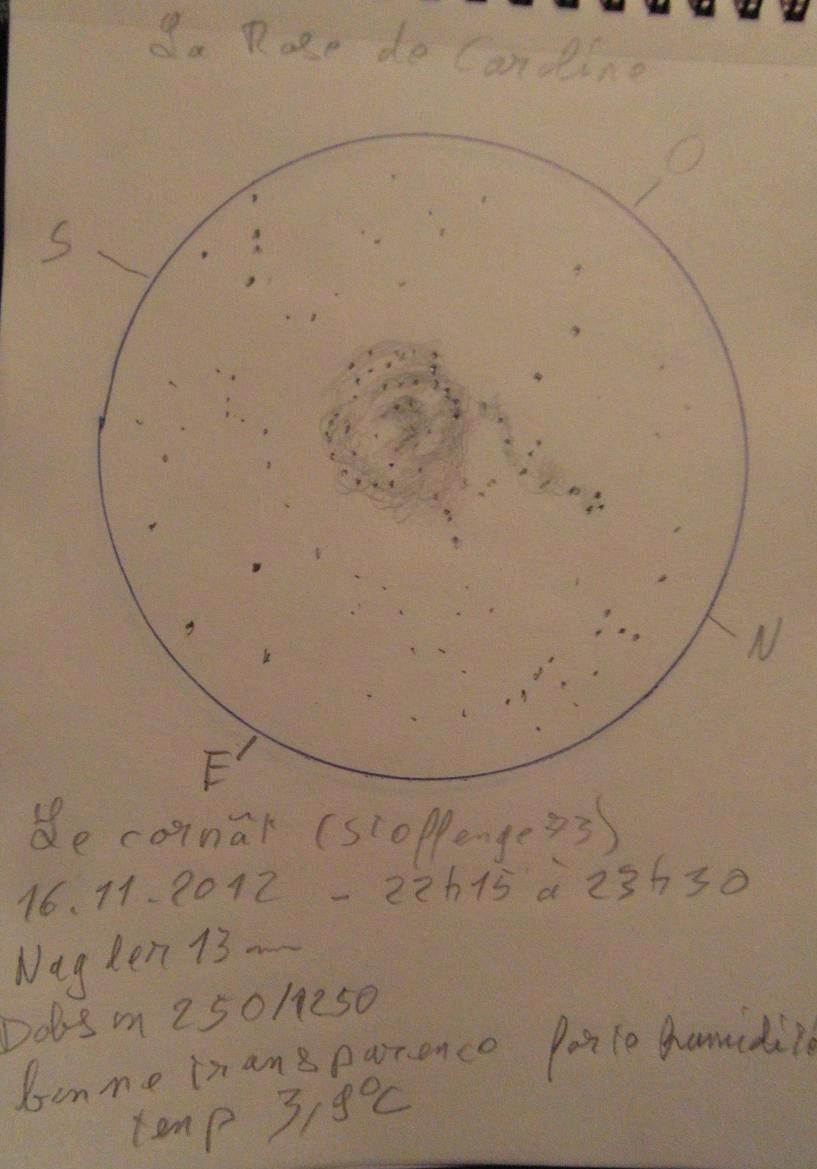 La Rose de Caroline
O
S
N
E
Le cornât (Stoffenge 73)
16.11.2012 - 22h15 à 23h30
Nagler 13 mm
Dobson 250/1250
bonne transparence forte humidité
temp 3,9°C